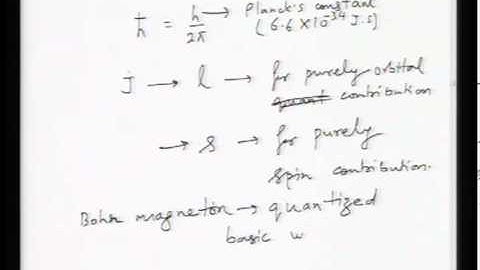 ħ = h/2π → Planck's constant
(6.6 × 10⁻³⁴ J.s)
J → l → for purely orbital
quant contribution
→ s → for purely
spin contribution.
Bohr magneton → quantized
basic w